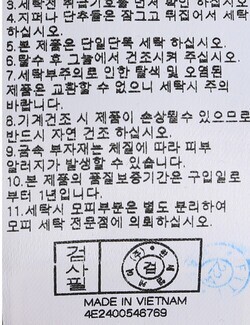 3.세탁전 취급기호를 먼저 확인 하십시오
4.지퍼나 단추들은 잠그고 뒤집어서 세탁
하십시오.
5.본 제품은 단일단독 세탁 하십시오.
6.탈수 후 그늘에서 건조시켜 주십시오.
7.세탁부주의로 인한 탈색 및 오염된
제품은 교환할 수 없으니 세탁시 주의
바랍니다.
8.기계건조 시 제품이 손상될수 있으므로
반드시 자연 건조 하십시오.
9.금속 부자재는 체질에 따라 피부
알러지가 발생할 수 있습니다.
10.본 제품의 품질보증기간은 구입일로
부터 1년입니다.
11.세탁시 모피부분은 별도 분리하여
모피 세탁 전문점에 의뢰하십시오.
검사필
검
MADE IN VIETNAM
4E2400546769